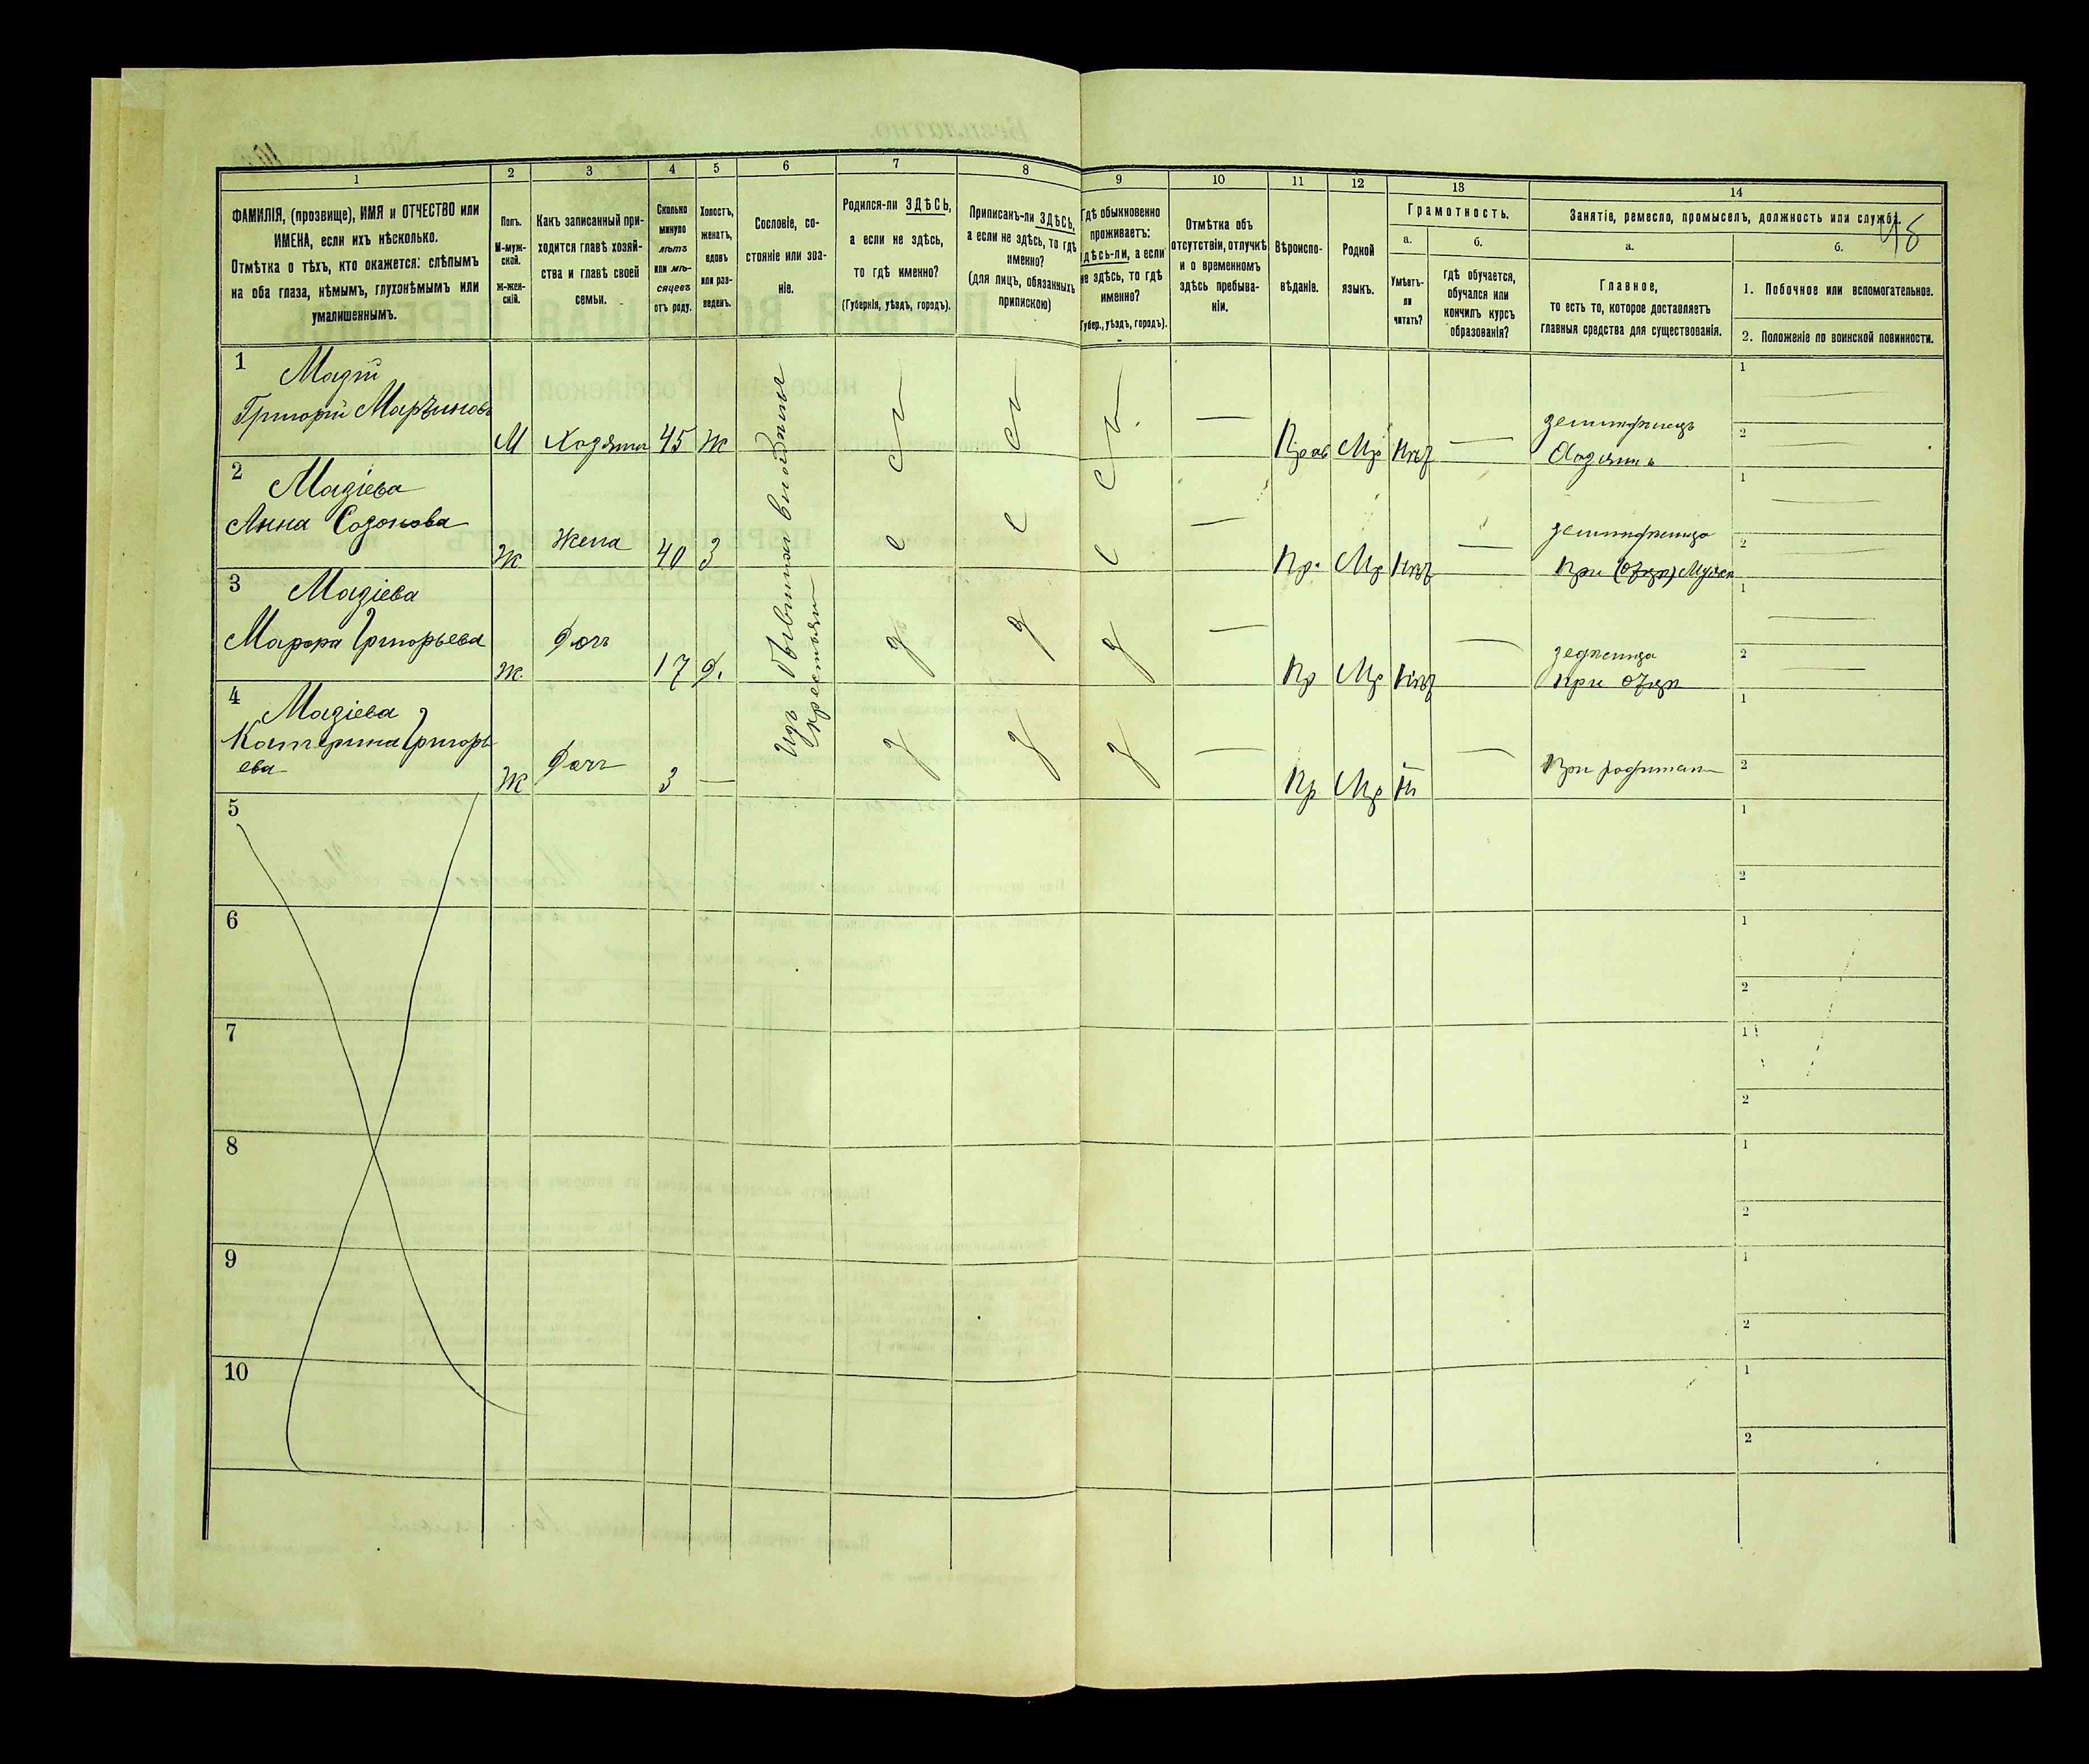 1 2 3 4 5 6 7 8 9 10 11 12 13 14
ФАМИЛІЯ, (прозвище), ИМЯ и ОТЧЕСТВО или
ИМЕНА, если ихъ нѣсколько.
Отмѣтка о тѣхъ, кто окажется: слѣпымъ
на оба глаза, нѣмымъ, глухонѣмымъ или
умалишеннымъ.
Полъ.
М-муж-
ской.
Ж-жен-
скій.
Какъ записанный при-
ходится главѣ хозяй-
ства и главѣ своей
семьи.
Сколько
минуло
лѣтъ
или мѣ-
сяцевъ
отъ роду.
Холостъ,
женатъ,
вдовъ
или раз-
веденъ.
Сословіе, со-
стояніе или зва-
ніе.
Родился-ли ЗДѢСЬ,
а если не здѣсь,
то гдѣ именно?
(Губернія, уѣздъ, городъ).
Приписанъ-ли ЗДѢСЬ,
а если не здѣсь, то гдѣ
именно?
(для лицъ, обязанныхъ
припискою)
Гдѣ обыкновенно
проживаетъ:
здѣсь-ли, а если
не здѣсь, то гдѣ
именно?
Губер., уѣздъ, городъ).
Отмѣтка объ
отсутствіи, отлучкѣ
и о временномъ
здѣсь пребыва-
ніи.
Вѣроиспо-
вѣданіе.
Родной
языкъ.
Грамотность.
а.
Умѣетъ-
ли
читать?
б.
гдѣ обучается,
обучался или
кончилъ курсъ
образованія?
Занятіе, ремесло, промыселъ, должность или служба.
48
а.
Главное,
то есть то, которое доставляетъ
главныя средства для существованія.
б.
1. Побочное или вспомогательное.
2. Положеніе по воинской повинности.
Изъ бывшихъ
крестьян
1
Мазій
Григорій
М 45 Ж
Прав Мр
1
2
2
Мазіева
Анна
Ж Жена 40 З
Пр. Мр
при Мужѣ
1
2
3
Мазіева
Григорьева
Ж Доч 17 д.
Пр Мр
при
1
2
4
Мазіева
Катерина Григорь
ева
Ж Доч 3 —
Пр Мр
При
1
2
5
1
2
6
1
2
7
1
2
8
1
2
9
1
2
10
1
2